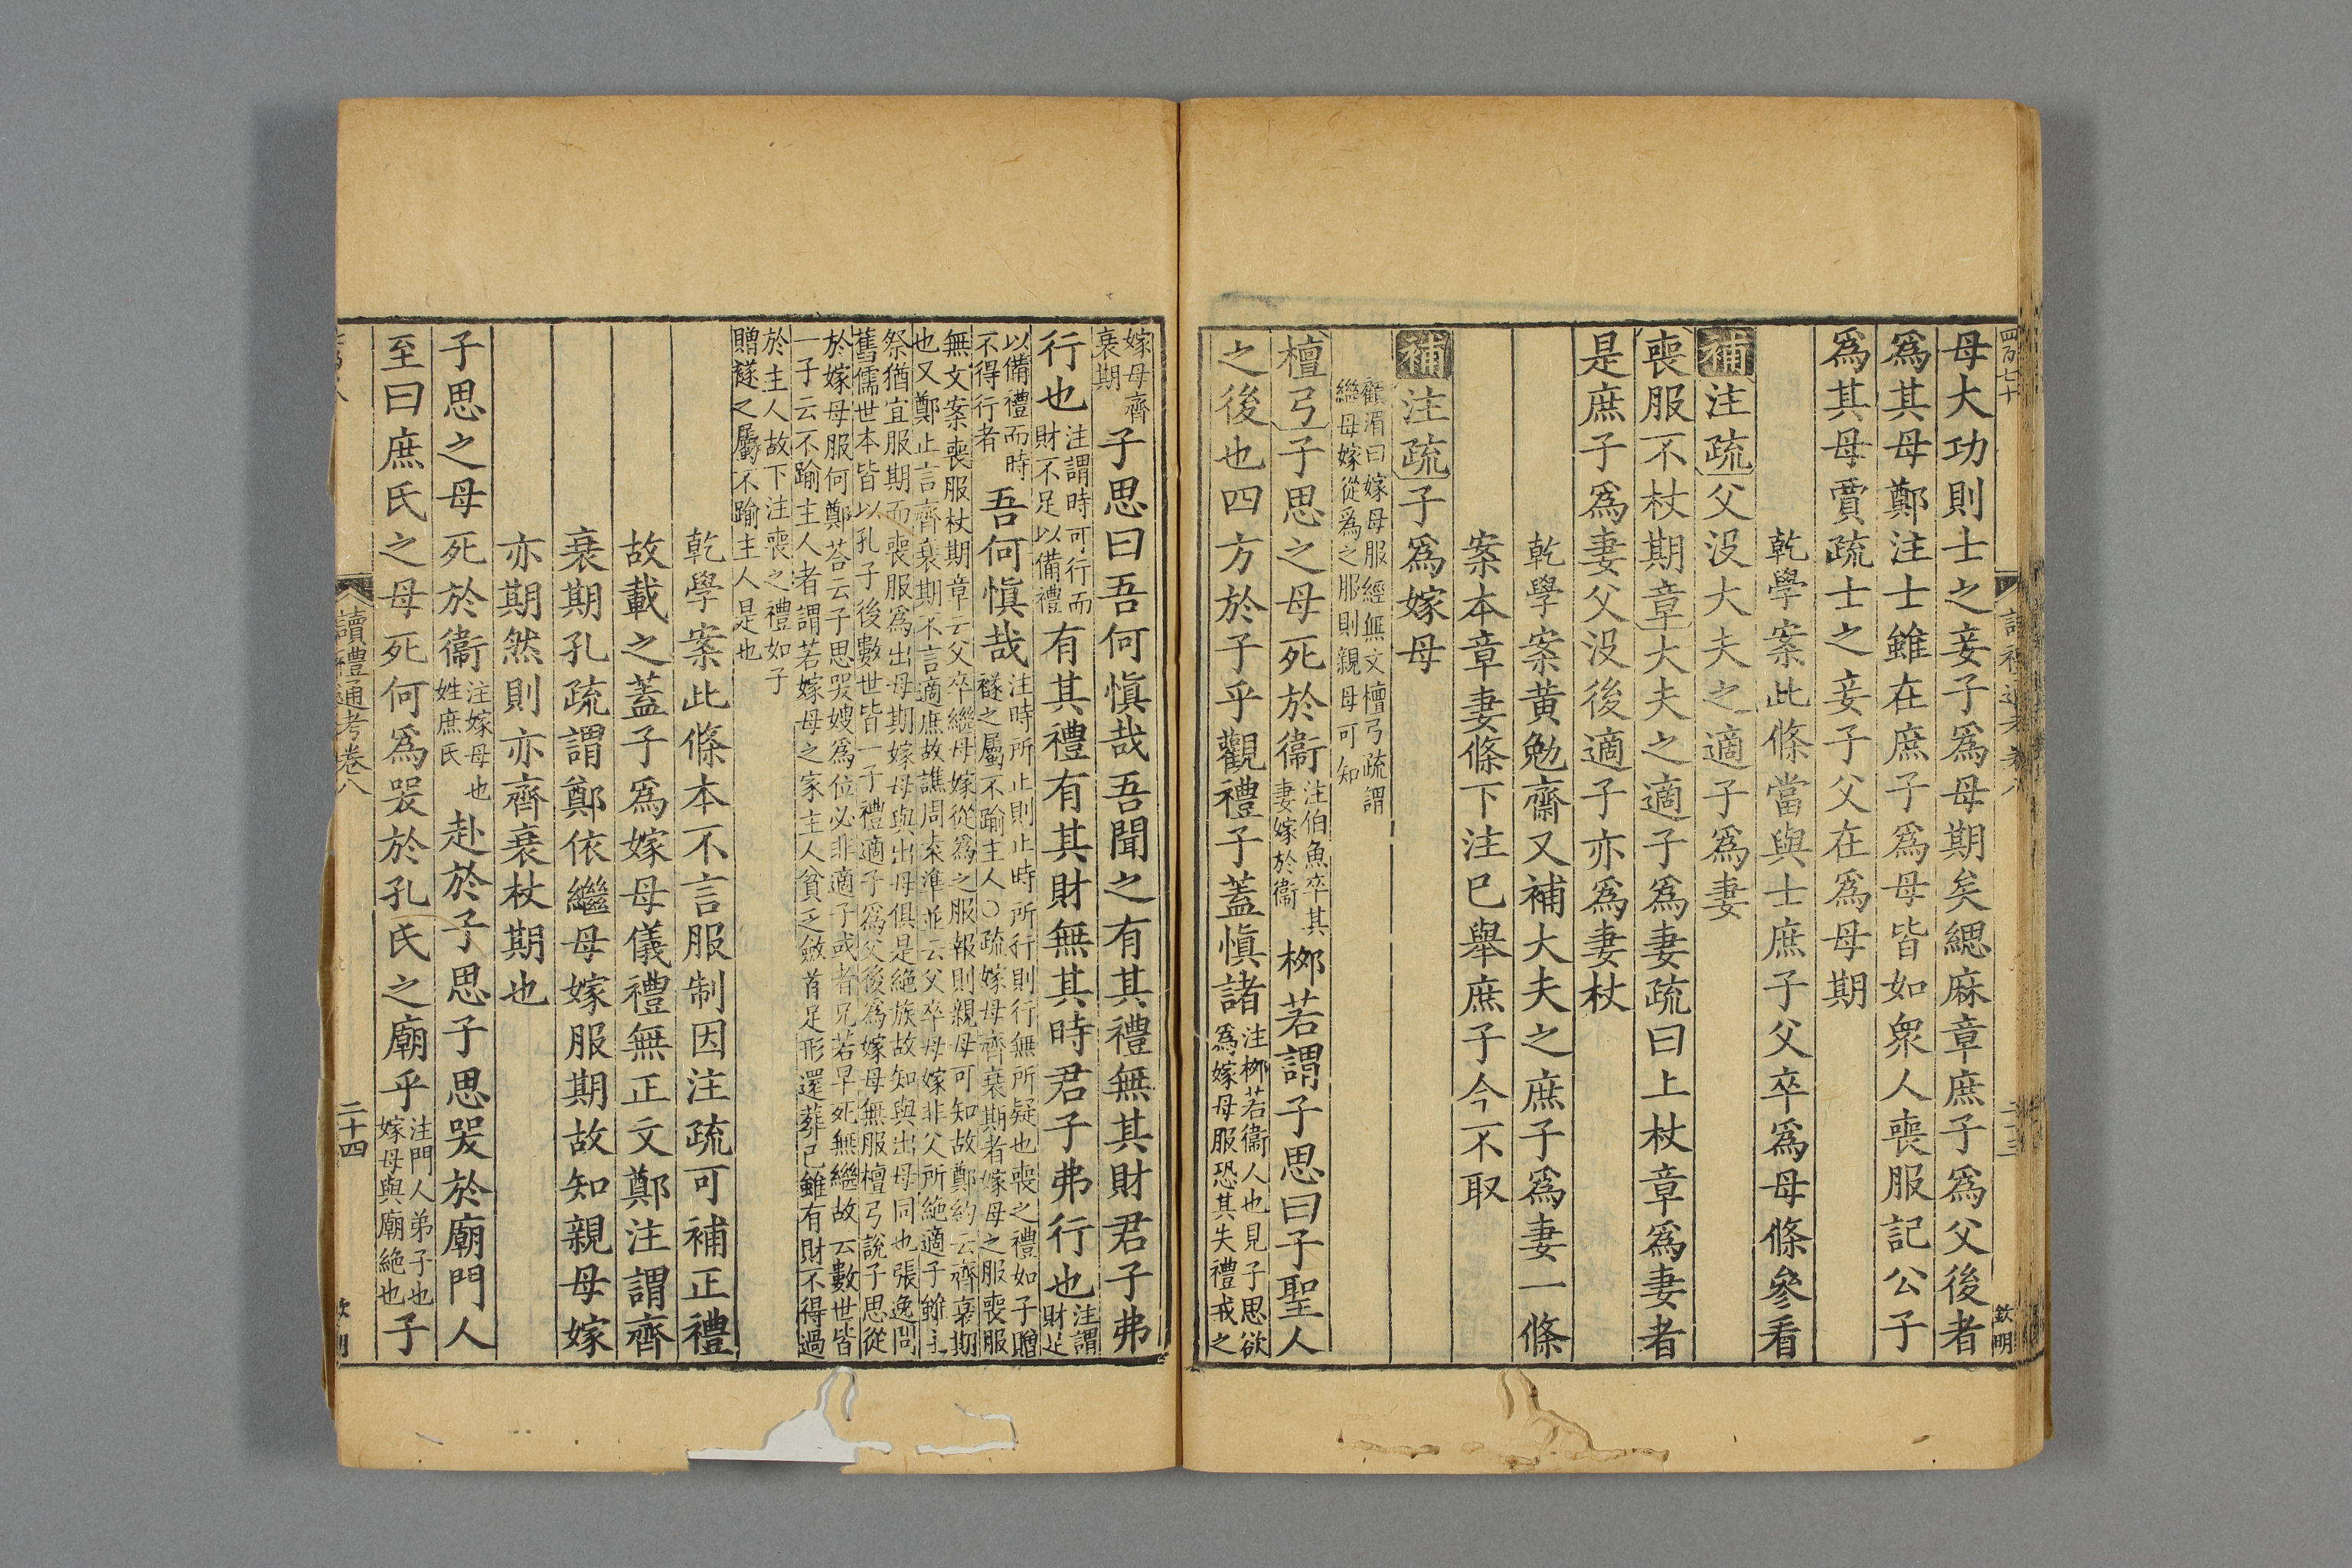 四百七十
二十三
欽明
母大功則士之妾子爲母期矣緦麻章庶子爲父後者
爲其母鄭注士雖在庶子爲母皆如衆人喪服記公子
爲其母賈疏士之妾子父在爲母期
乾學案此條當與士庶子父卒爲母條參看
補注疏父没大夫之適子爲妻
喪服不杖期章大夫之適子爲妻疏曰上杖章爲妻者
是庶子爲妻父没後適子亦爲妻杖
乾學案黄勉齋又補大夫之庶子爲妻一條
案本章妻條下注已舉庶子今不取
補注疏子爲嫁母
顧湄曰嫁母服經無文檀弓疏謂
繼母嫁從爲之服則親母可知
檀弓子思之母死於衞注伯魚卒其妻嫁於衞栁若謂子思曰子聖人
之後也四方於子乎觀禮子蓋愼諸注栁若衞人也見子思欲爲嫁母服恐其失禮戒之
嫁母齊衰期子思曰吾何愼哉吾聞之有其禮無其財君子弗
行也注謂時可行而財不足以備禮有其禮有其財無其時君子弗行也注謂財足
以備禮而時不得行者吾何愼哉注時所止則止時所行則行無所疑也喪之禮如子贈襚之屬不踰主人○疏嫁母齊衰期者嫁母之服喪服
無文案喪服杖期章云父卒繼母嫁從爲之服報則親母可知故鄭約云齊衰期
也又鄭止言齊衰期不言適庶故譙周袁準並云父卒母嫁非父所絶適子雖主
祭猶宜服期而喪服爲出母期嫁母與出母俱是絶族故知與出母同也張逸問
舊儒世本皆以孔子後數世皆一子禮適子爲父後爲嫁母無服檀弓說子思從
於嫁母服何鄭荅云子思哭嫂爲位必非適子或者兄若早死無繼故云數世皆
一子云不踰主人者謂若嫁母之家主人貧乏斂首足形還葬己雖有財不得過
於主人故下注喪之禮如子
贈襚之屬不踰主人是也
乾學案此條本不言服制因注疏可補正禮
故載之蓋子爲嫁母儀禮無正文鄭注謂齊
衰期孔疏謂鄭依繼母嫁服期故知親母嫁
亦期然則亦齊衰杖期也
子思之母死於衞注嫁母也姓庶氏赴於子思子思哭於廟門人
至曰庶氏之母死何爲哭於孔氏之廟乎注門人弟子也嫁母與廟絶也子
讀禮通考卷八
二十四